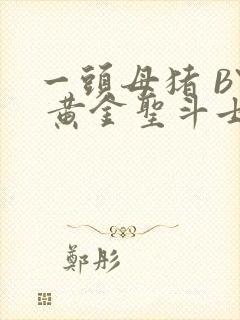 一頭母猪 BY
黄金聖斗士
鄭彤